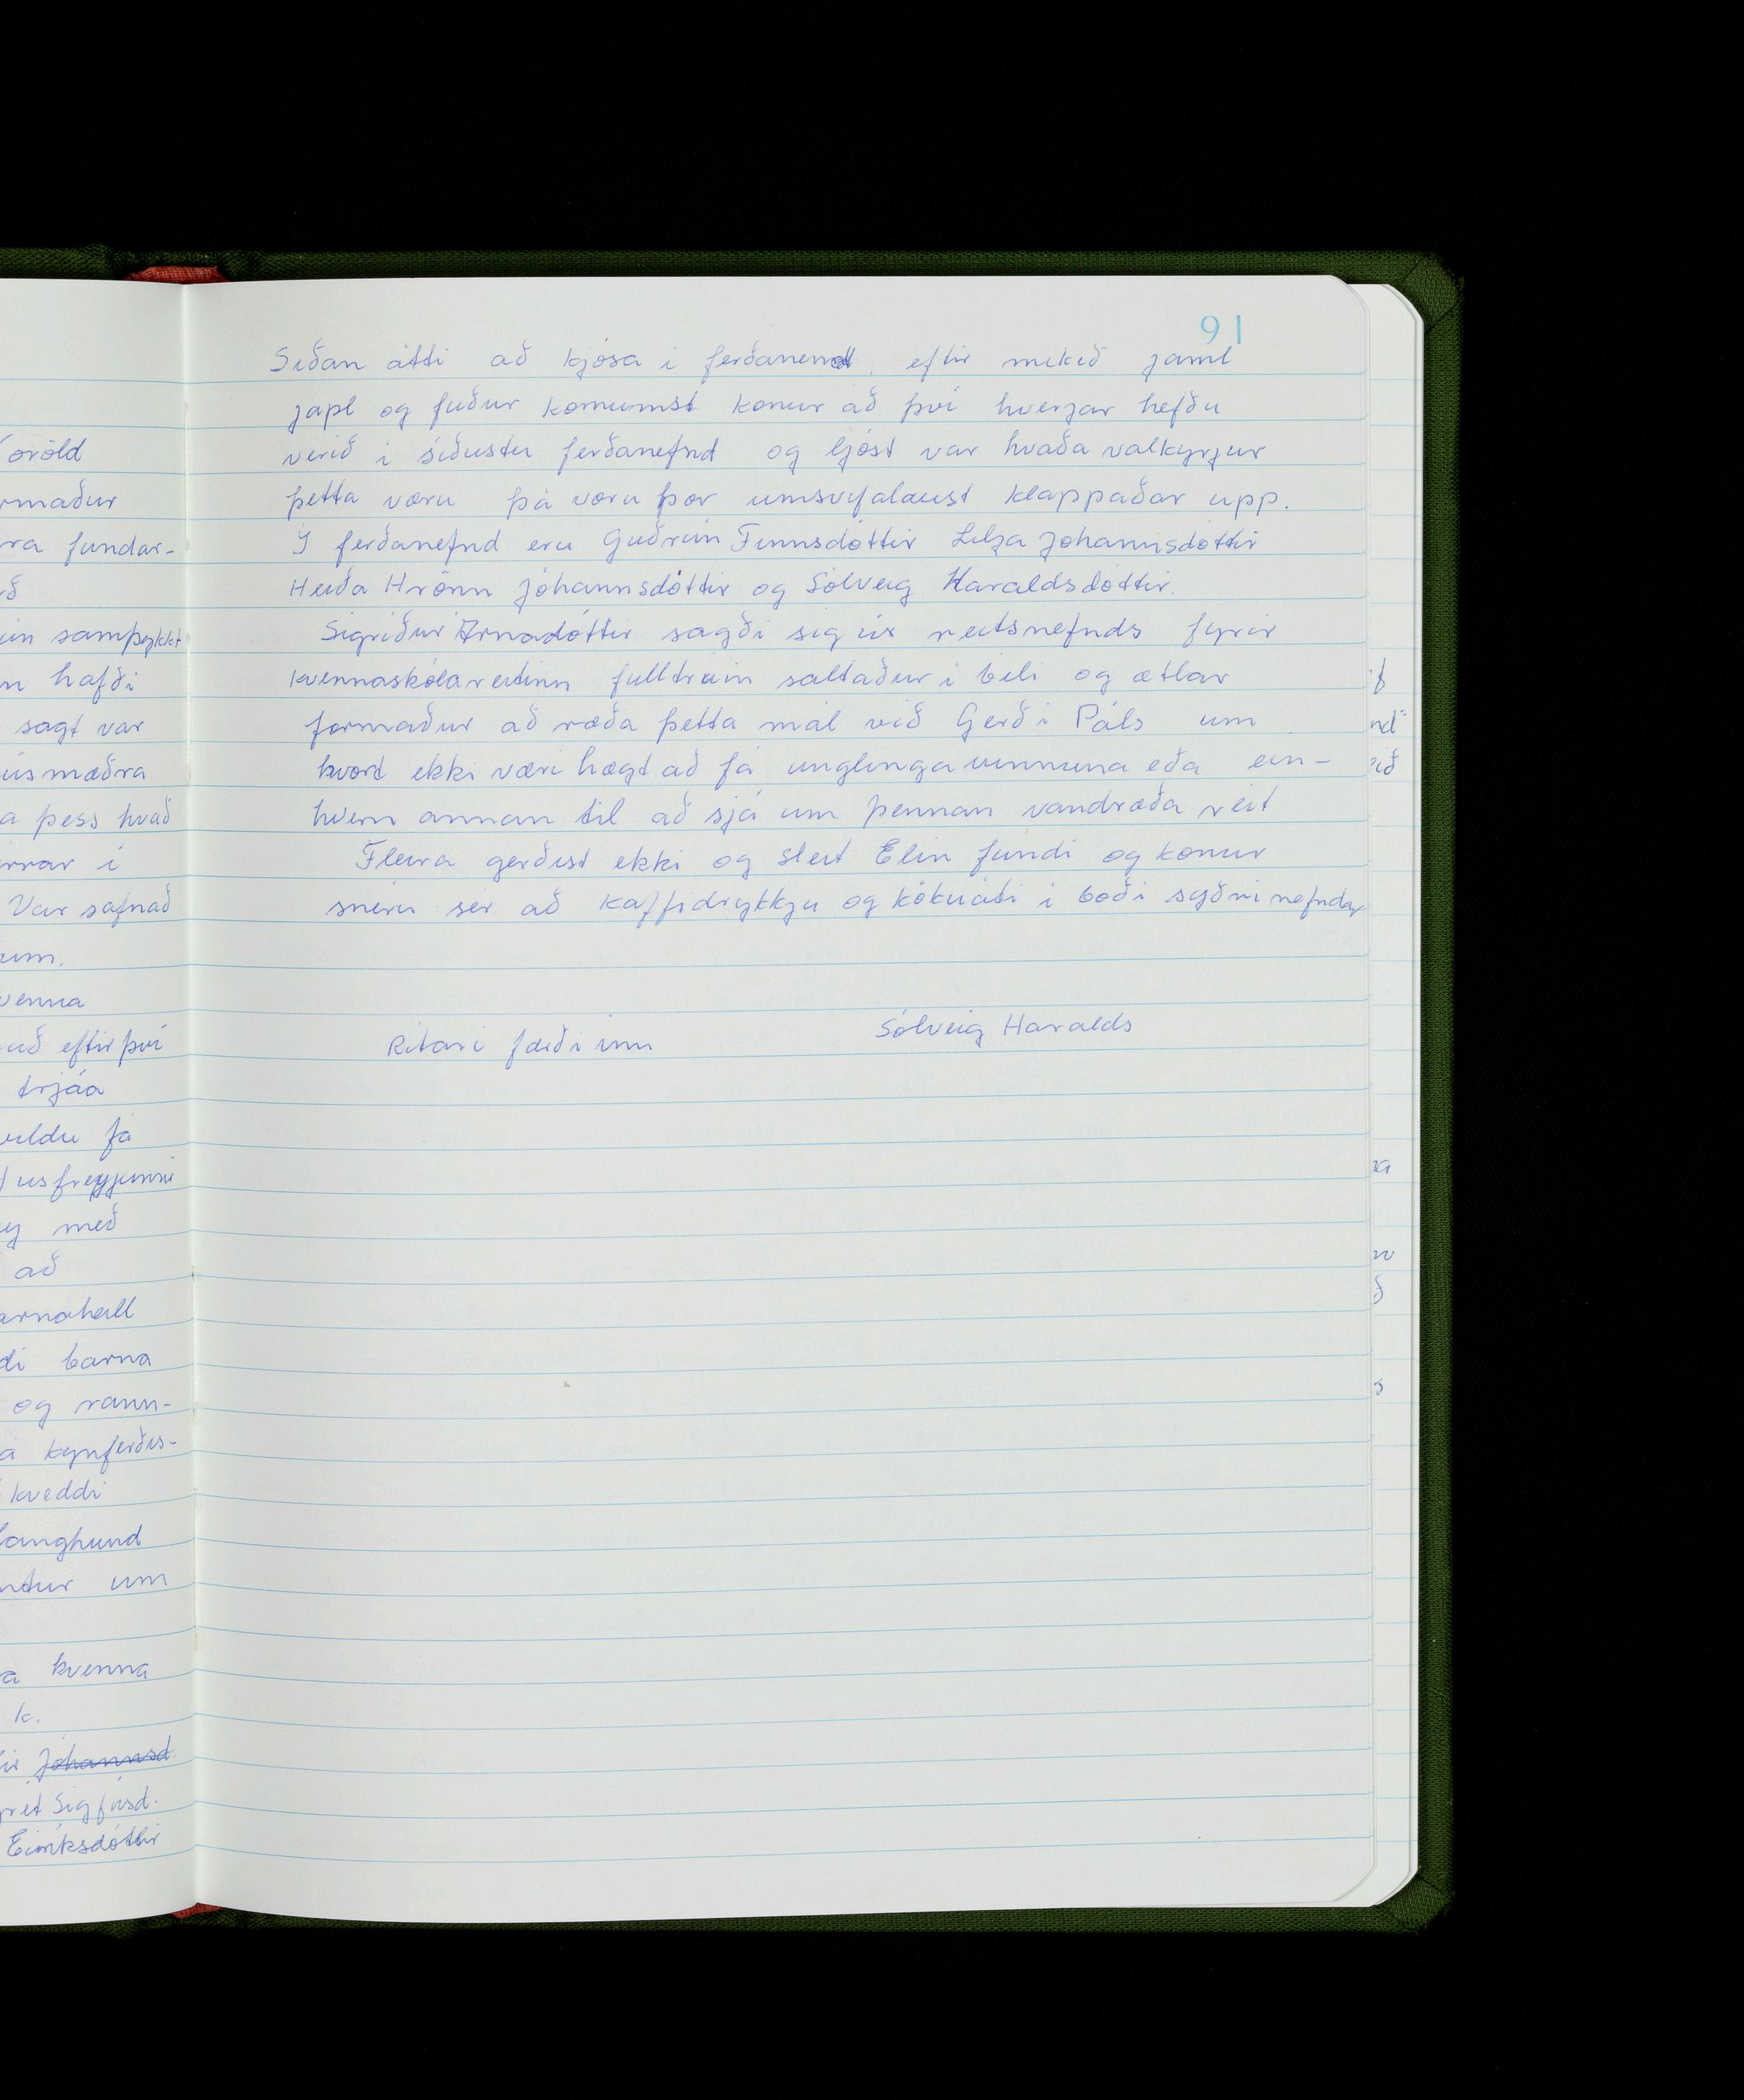 91
Síðan átti að kjósa i ferðanend, eftir mikið jaml
japl og fuður komumst konur að því hverjar hefðu
verið i síðustu ferðanefnd og ljóst var hvaða valkyrjur
þetta væru þá voru þær umsvifalaust klappaðar upp.
Í ferðanefnd eru Guðrún Finnsdóttir Lilja Jóhannsdóttir
Heiða Hrönn Jóhannsdóttir og Sólveig Haraldsdóttir.
Sigríður Árnadóttir sagði sig úr reitsnefnds fyrir
kvennaskólareitinn fulltrúin saltaður i bili og ætlar
formaður að ræða þetta mál við Gerði Páls um
hvort ekki væri hægt að fá unglingavinnuna eða ein-
hvern annan til að sjá um þennan vandræða reit
Fleira gerðist ekki og sleit Elín fundi og konur
snéru sér að kaffidrykkju og kökuáti i boði syðri nefndar
Ritari færði inn Sólveig Haralds
oröld
rmaður
ra fundar-
ð
ún samþykkt
n hafði
sagt var
úsmæðra
a þess hvað
irrar í
Var safnað
um.
venna
uð eftir því
trjáa
vildu fá
usfreyjunni
ey með
að
arnaheill
di barna
og rann-
á kynferðis-
kveddi
langhund
ntur um
a kvenna
k.
ir Jóhannsd
grét Sigfúsd.
Eiríksdóttir